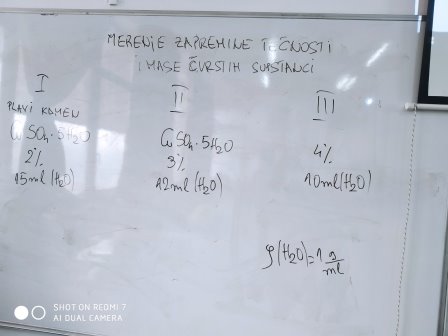 MERENJE ZAPREMINE TEČNOSTI
I MASE ČVRSTIH SUPSTANCI
I
PLAVI KAMEN
CuSO₄·5H₂O
2%
15ml (H₂O)
II
CuSO₄·5H₂O
3%
12ml (H₂O)
III
4%
10ml (H₂O)
ρ(H₂O)=1 g/ml
SHOT ON REDMI 7
AI DUAL CAMERA